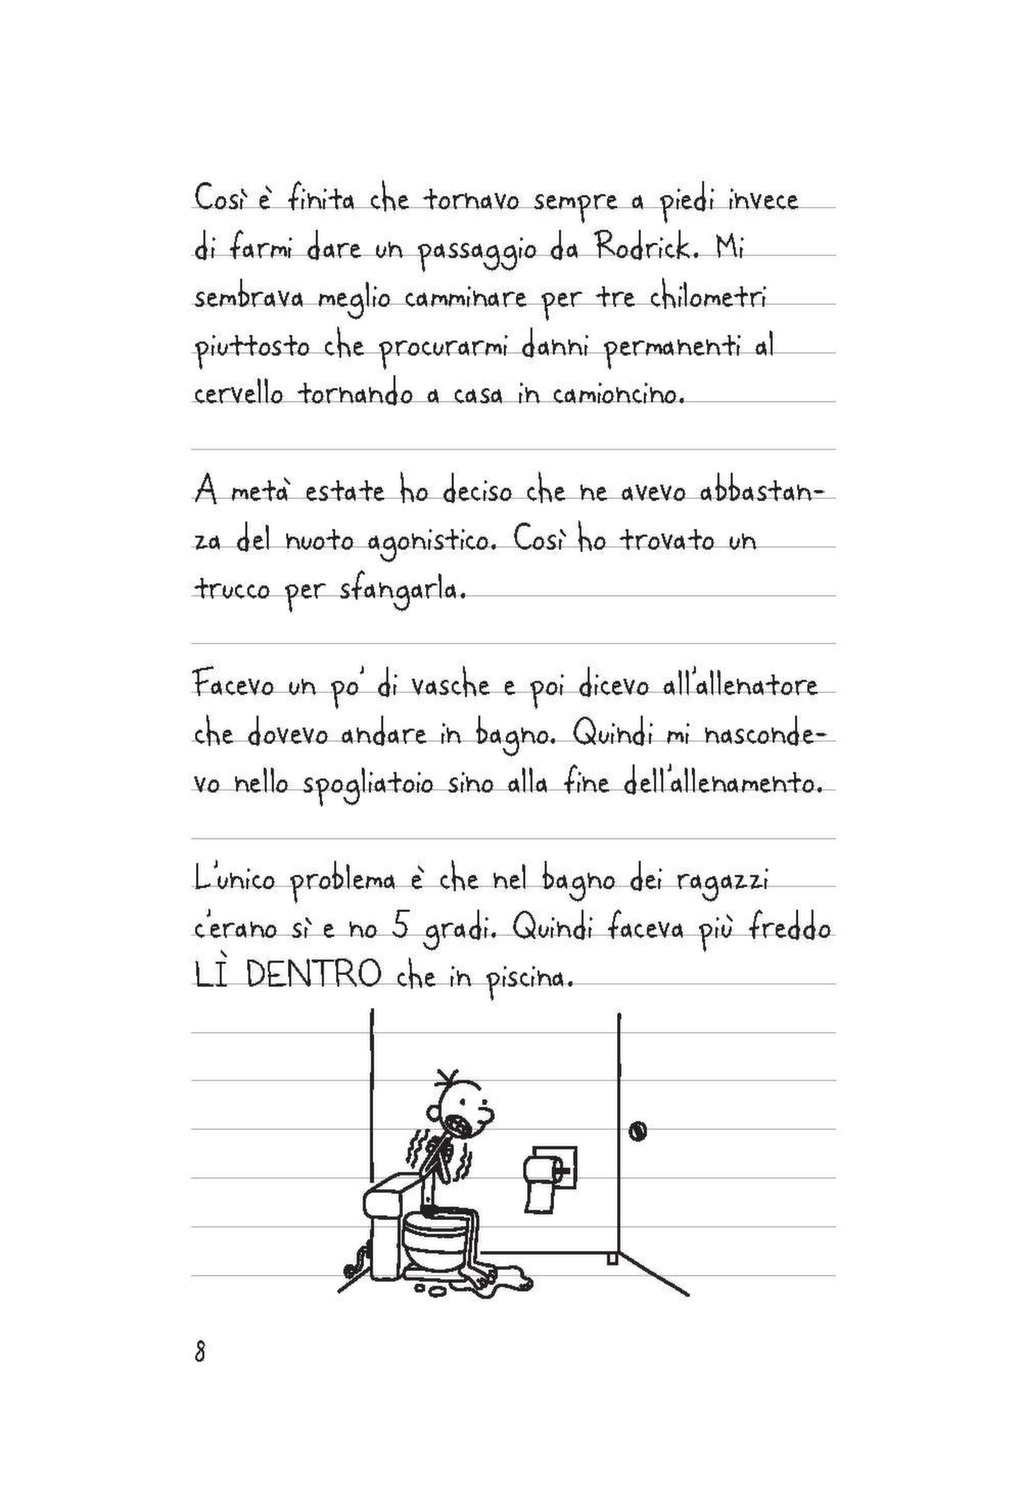 Così è finita che tornavo sempre a piedi invece
di farmi dare un passaggio da Rodrick. Mi
sembrava meglio camminare per tre chilometri
piuttosto che procurarmi danni permanenti al
cervello tornando a casa in camioncino.
A metà estate ho deciso che ne avevo abbastan-
za del nuoto agonistico. Così ho trovato un
trucco per sfangarla.
Facevo un po' di vasche e poi dicevo all'allenatore
che dovevo andare in bagno. Quindi mi nasconde-
vo nello spogliatoio sino alla fine dell'allenamento.
L'unico problema è che nel bagno dei ragazzi
c'erano sì e no 5 gradi. Quindi faceva più freddo
LÌ DENTRO che in piscina.
8